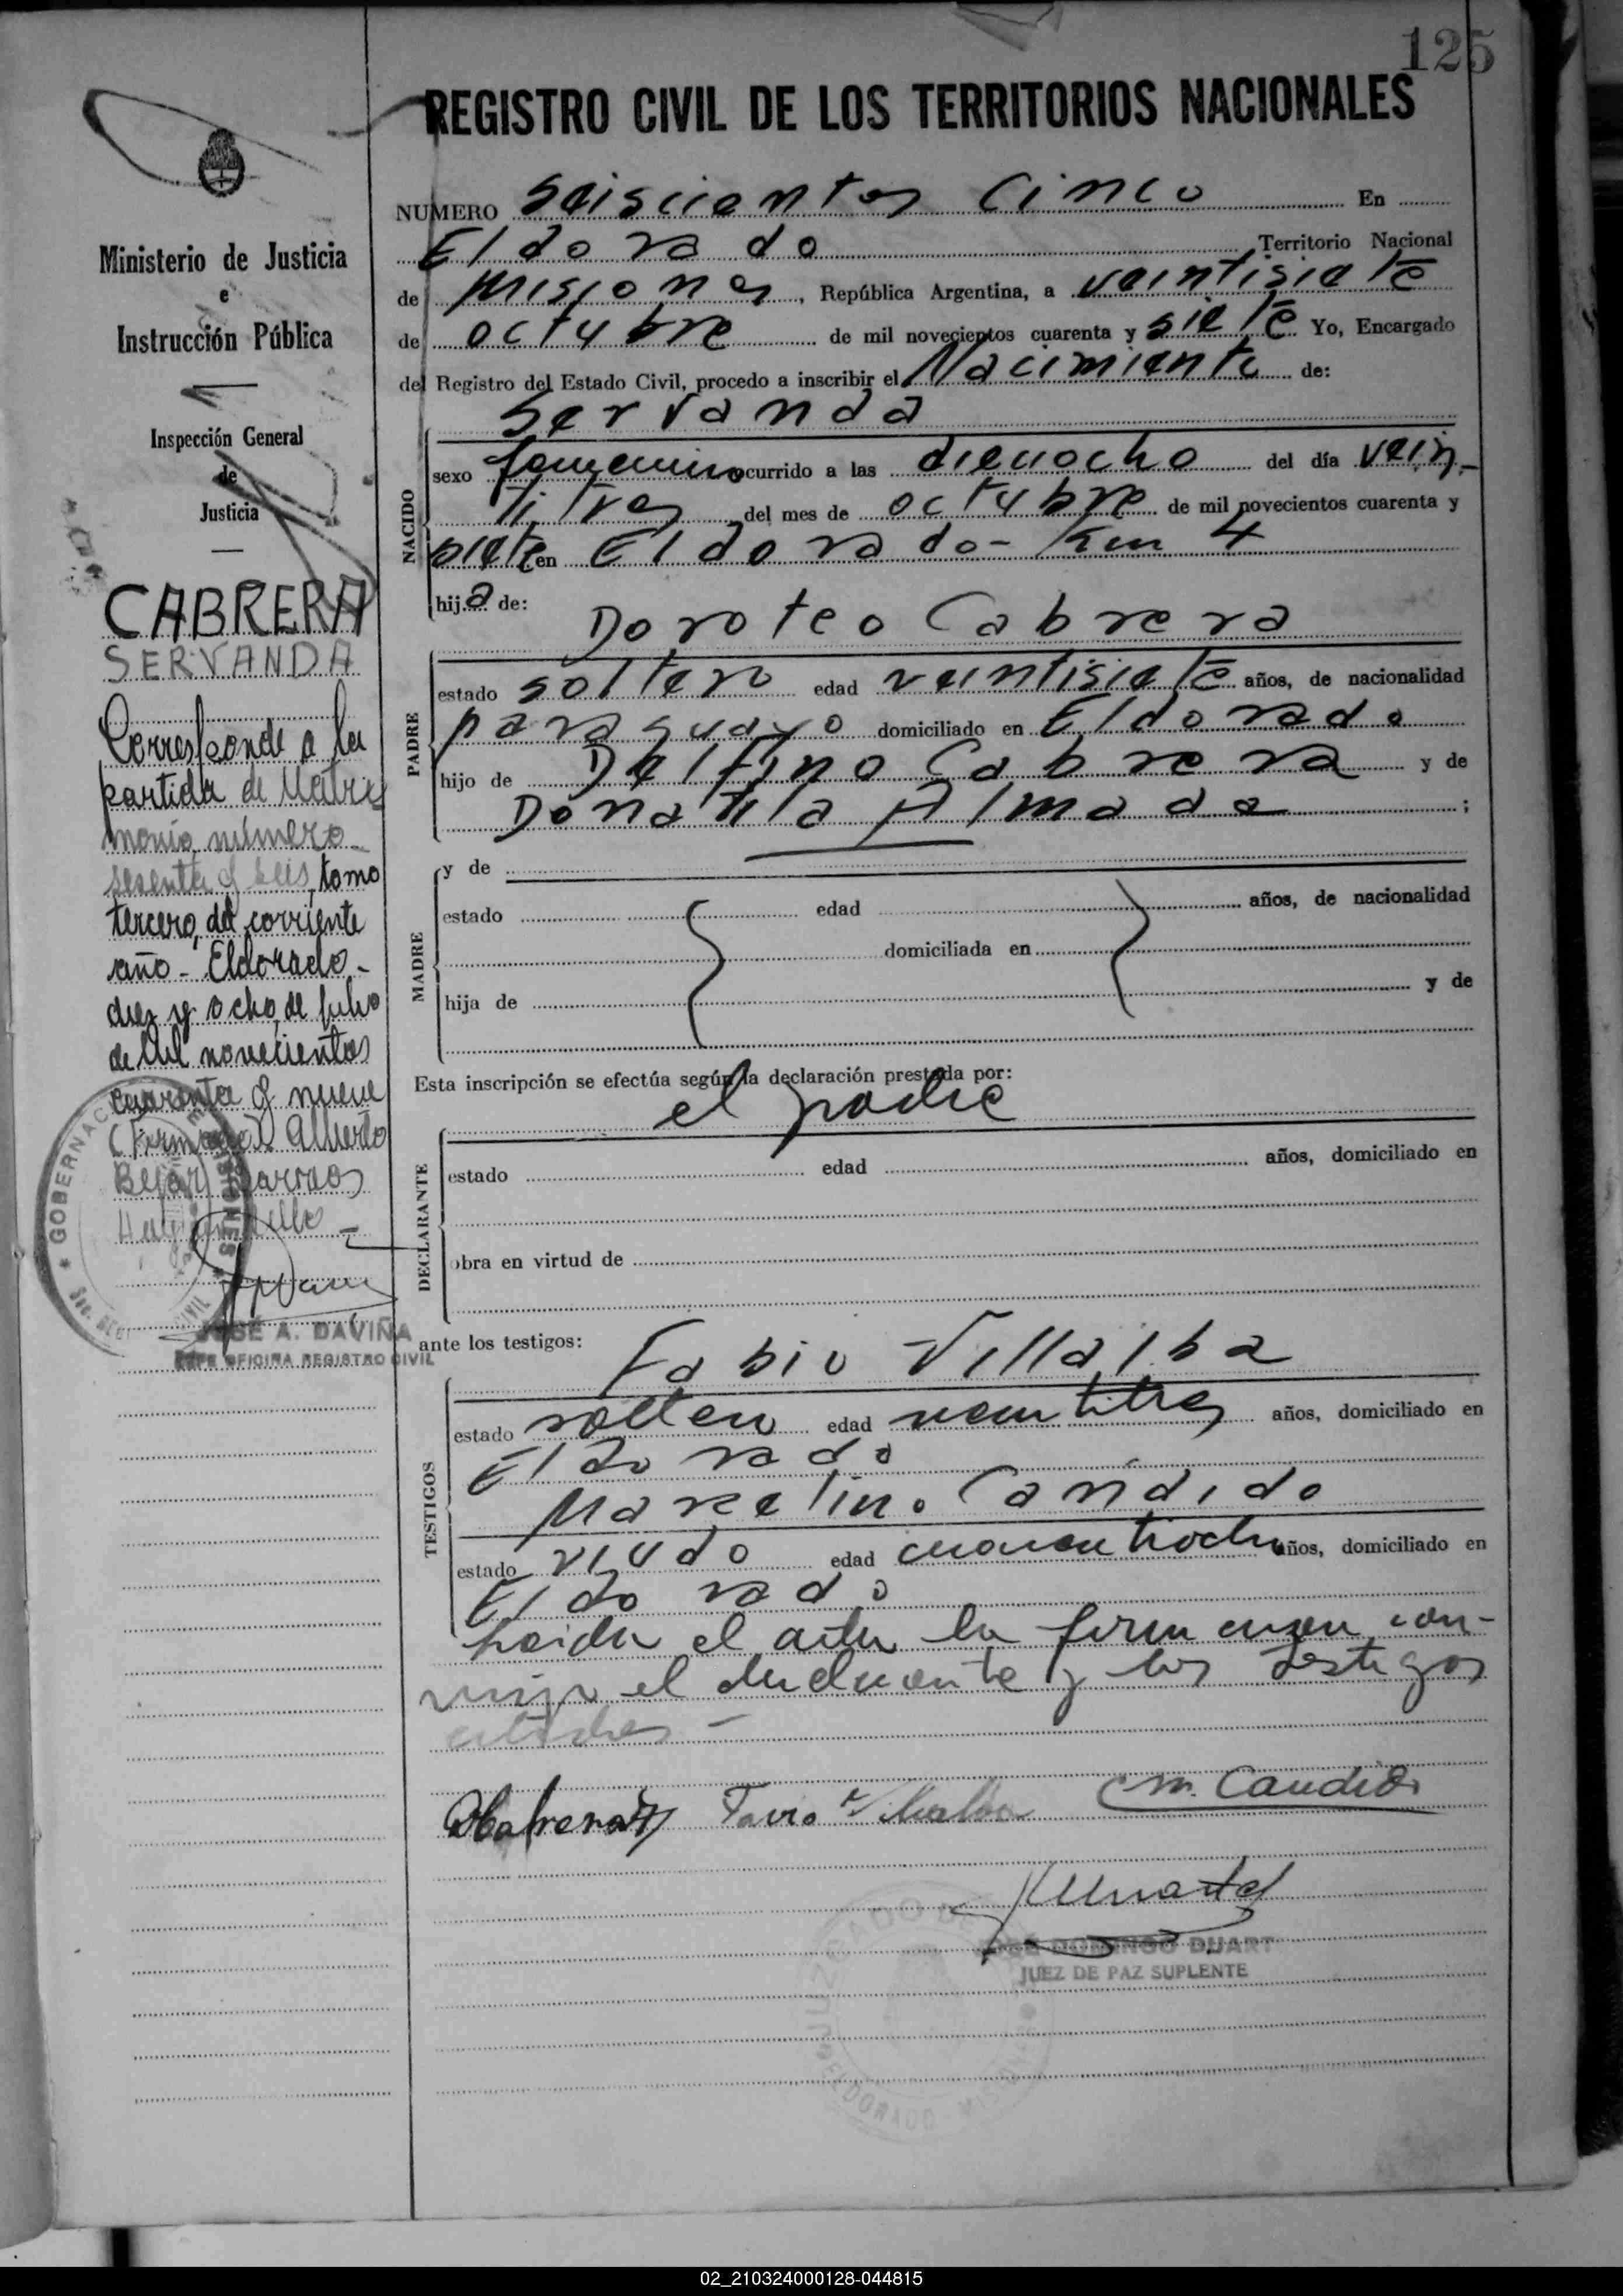 125
REGISTRO CIVIL DE LOS TERRITORIOS NACIONALES
NUMERO Seiscientos Cinco En
Eldorado Territorio Nacional
de Misiones, República Argentina, a veintisiete
de octubre de mil novecientos cuarenta y siete Yo, Encargado
del Registro del Estado Civil, procedo a inscribir el Nacimiento de:
Servanda
NACIDO
sexo femenino ocurrido a las dieciocho del día vein-
titres del mes de octubre de mil novecientos cuarenta y
siete en Eldorado - Km 4
hija de:
Doroteo Cabrera
PADRE
estado soltero edad veintisiete años, de nacionalidad
paraguayo domiciliado en Eldorado
hijo de Delfino Cabrera y de
Donatila Almada ;
MADRE
y de
estado edad años, de nacionalidad
domiciliada en
hija de y de
Esta inscripción se efectúa según la declaración prestada por:
el padre
DECLARANTE
estado edad años, domiciliado en
obra en virtud de
ante los testigos:
Fabio Villalba
TESTIGOS
estado soltero edad veintitres años, domiciliado en
Eldorado
Marcelino Candido
estado viudo edad cuarentiocho años, domiciliado en
Eldorado
Leida el acta la firman con-
migo el declarante y los testigos
citados -
DCabrera Favio Villalba M. Candido
JOSE DOMINGO DUART
JUEZ DE PAZ SUPLENTE
JUZGADO DE
ELDORADO MISIONES
Ministerio de Justicia
e
Instrucción Pública
Inspección General
de
Justicia
CABRERA
SERVANDA
Corresponde a la
partida de Matri
monio número
sesenta y seis, tomo
tercero, del corriente
año - Eldorado -
diez y ocho, de julio
de mil novecientos
cuarenta y nueve
(Firmado) Alberto
Barrios
GOBERNAC MISIONES
CIVIL
JOSÉ A. DAVIÑA
JEFE OFICINA REGISTRO CIVIL
02_210324000128-044815